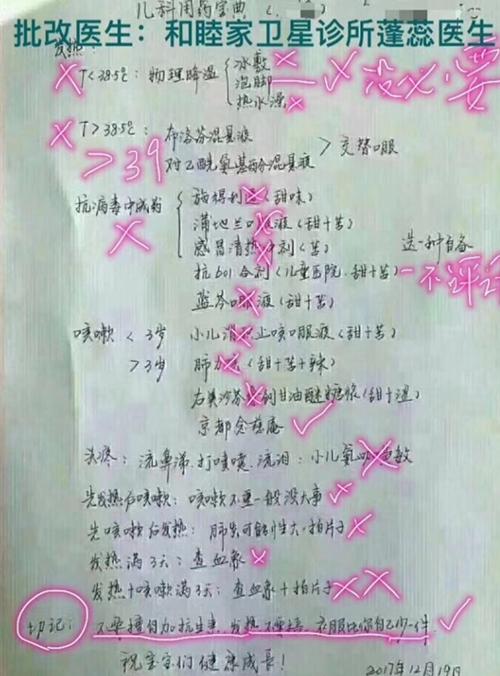 儿科用药宝典
批改医生：和睦家卫星诊所蓬蕊医生
发热：
T<38.5℃：物理降温
冰敷
泡脚
热水澡
没必要
T>38.5℃：布洛芬混悬液
对乙酰氨基酚混悬液
>交替口服
>39
抗病毒中成药
(甜味)
蒲地兰口服液(甜+苦)
感冒清热冲剂(苦)
抗601合剂(儿童医院.甜+苦)
蓝芩口服液(甜+苦)
选一种自备
一不评论
咳嗽 <3岁 小儿消积止咳口服液(甜+苦)
>3岁 肺力咳(甜+苦+辣)
右美沙芬愈创甘油醚糖浆(甜+涩)
京都念慈庵
头疼：流鼻涕.打喷嚏.流泪：小儿氨酚
先发热后咳嗽：咳嗽不重一般没大事
先咳嗽后发热：肺炎可能性大.拍片子
发热满3天：查血象
发热+咳嗽满3天：查血象+拍片子
切记：不要擅自加抗生素，发热不要捂，衣服比你自己少一件
祝宝宝们健康成长！
2017年12月19日